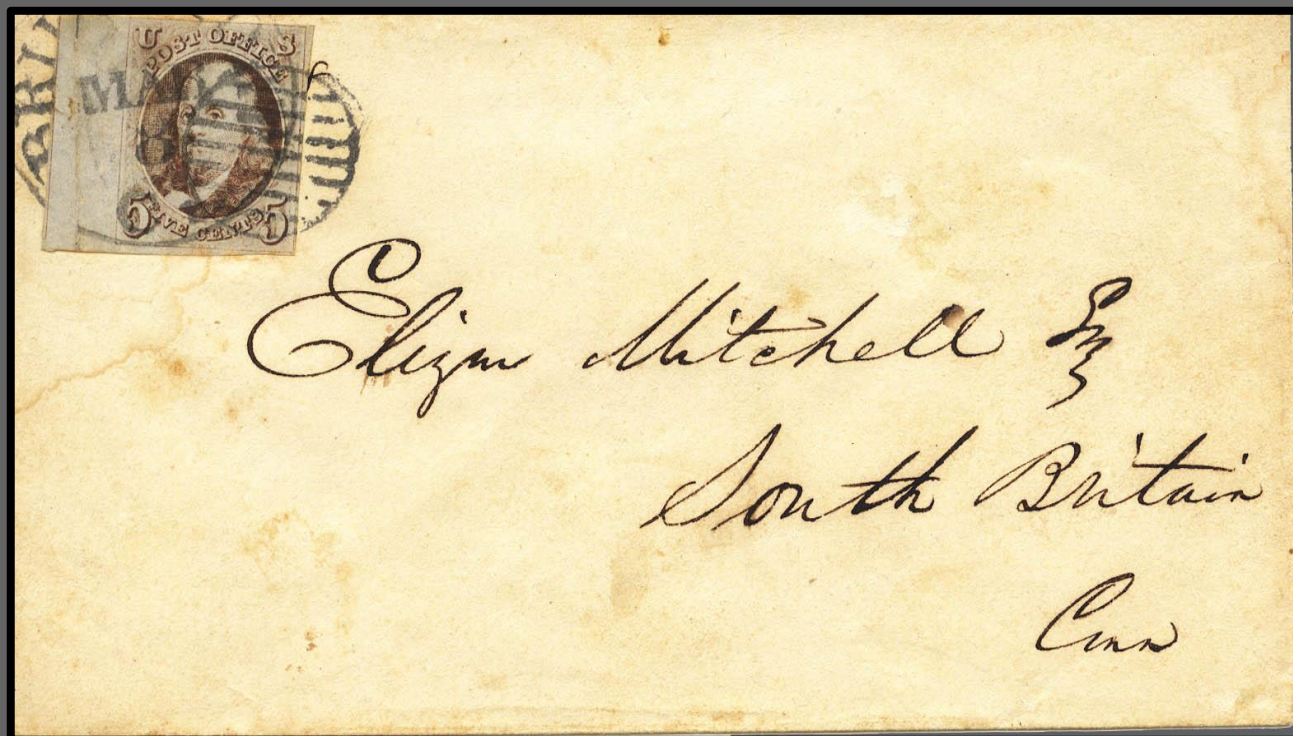 U S
POST OFFICE
5 FIVE CENTS 5
Elizur Mitchell Esq
South Britain
Conn